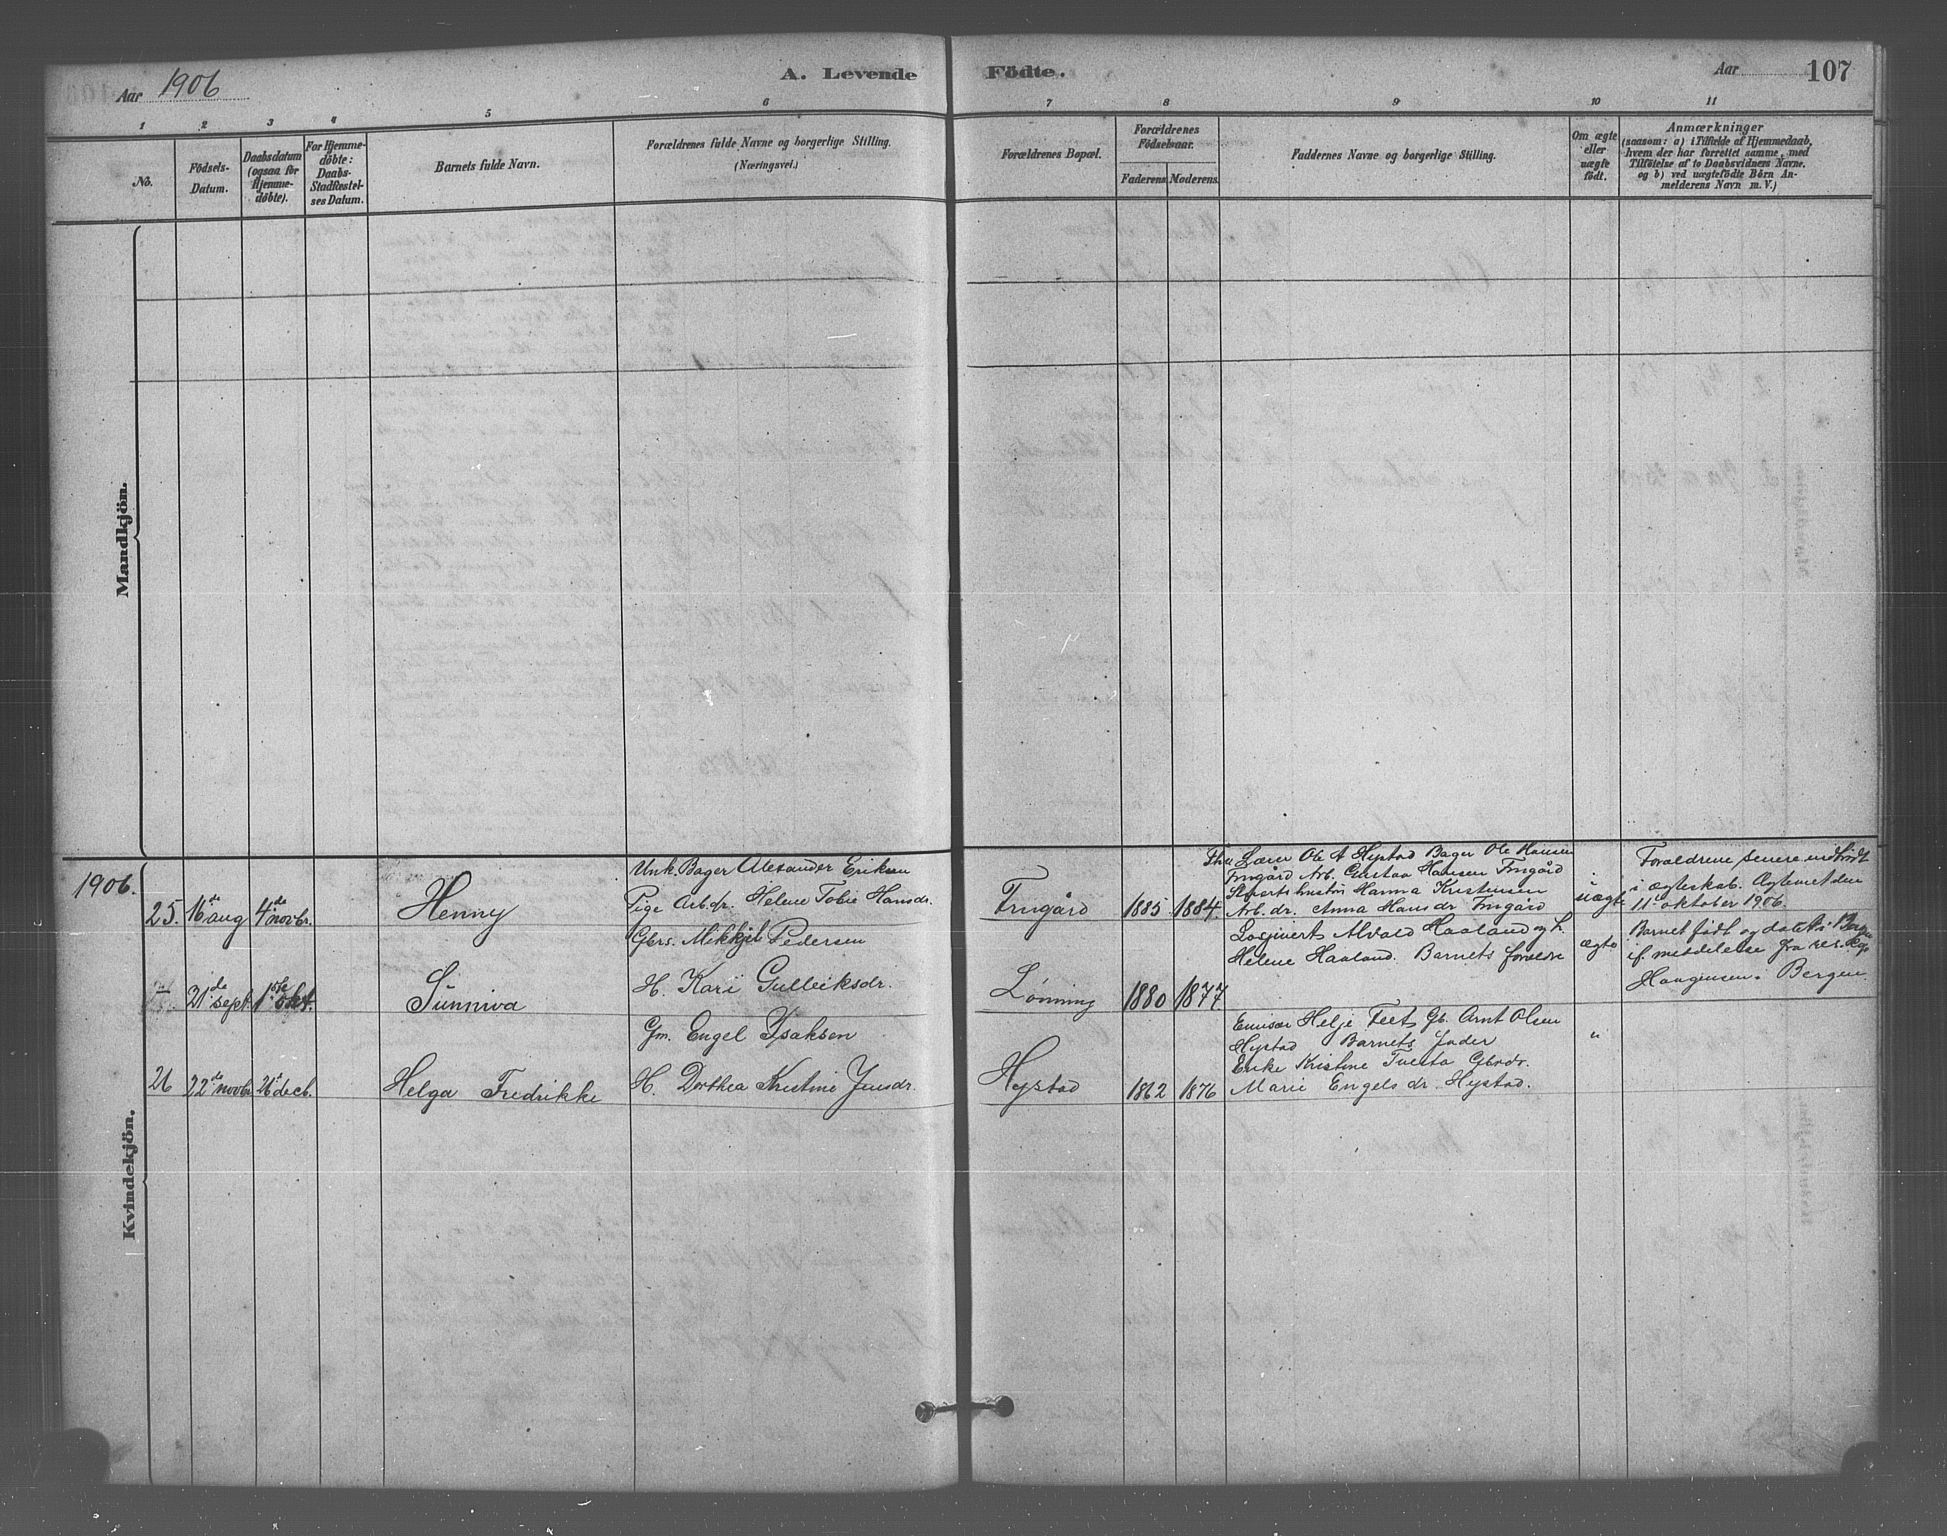 Aar 1906
A. Levende Födte.
Aar 107
1 2 3 4 5 6 7 8 9 10 11
No.
Födsels-
Datum.
Daabsdatum
(ogsaa for
Hjemme-
döbte).
For Hjemme-
döbte:
Daabs-
Stadfæstel-
ses Datum.
Barnets fulde Navn.
Forældrenes fulde Navne og borgerlige Stilling.
(Næringsvei.)
Forældrenes Bopæl.
Forældrenes
Födselsaar.
Faderens Moderens.
Faddernes Navne og borgerlige Stilling.
Om ægte
eller
uægte
födt.
Anmærkninger
(saasom: a) i Tilfælde af Hjemmedaab,
hvem der har forrettet samme, med
Tilföielse af to Daabsvidners Navne.
og b) ved uægtefödte Börn An-
melderens Navn m. V.)
Mandkjön.
Kvindekjön.
1906.
25. 16de aug 4de novbr.
Henny
Unk. Bager Alexander Eriksen
Pige Arb.dr. Helene Tobie Hansdr.
Frugård
1885 1884
Lærer Ole A Hystad Bager Ole Hansen
Frugård Arb. Gustav Hansen Frugård
Hanna Kristensen
Arb. dr. Anna Hansdr Frugård
uægte
Forældrene senere indtrådt
i ægteskab. Ægteviet den
11. oktober 1906.
21de sept. 1ste okt.
Sunniva
Gbrs. Mikkjel Pedersen
H. Kari Gulleiksdr.
Lønning
1880 1877
Losjivert Alvald Haaland og h.
Helene Haaland. Barnets foreldre
ægte
Barnet født og døbt i Bergen
if. meddelelse fra res. kap.
Haagensen i Bergen
26 22de novbr 26de decb.
Helga Fredrikke
Gm. Engel Isaksen
H. Dorthea Kristine Jensdr.
Hystad
1862 1876
Emisær Helje Feet Gb. Arnt Olsen
Hystad Barnets fader
Enke Kristine Tvesta Gbrdr.
Marie Engelsdr. Hystad.
"